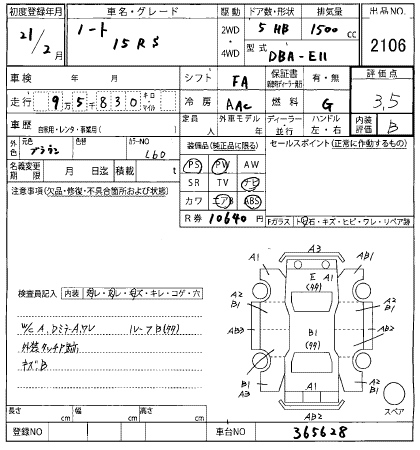 初度登録年月 車名・グレード 駆動 ドア数・形状 排気量 出品NO.
21/2月 ノート 15RS 2WD・4WD 5 HB 1500 cc 2106
型式 DBA-E11
車検 年 月 シフト FA 保証書 有・無 評価点
走行 9万5千830 キロ・マイル 冷房 AAC 燃料 G 3,5
車歴 自家用・レンタ・事業用( ) 定員 人 外車モデル 年 ディーラー・並行 ハンドル 左・右 内装評価 B
外色 元色 ブラウン 色替 カラーNO L60 装備品(純正品に限る) セールスポイント(正常に作動するもの)
名義変更期限 月 日迄 積載 t PS PW AW
注意事項(欠品・修復・不具合箇所および状態) SR TV ナビ
カワ エアB ABS
R券 10640 円 Fガラス トビ石・キズ・ヒビ・ワレ・リペア跡
A3
A1 E A1 AB1
(タタ)
A2
B1
検査員記入 内装 ヨゴレ・スレ・キズ・キレ・コゲ・穴
W/C A、Dミラー A、ワレ ルーフB(タタ)
AB3 B1 AB3
(タタ)
外装タッチア跡
キズ・B
A2
B1
B1
A3 A1 A1
AB2
スペア
長さ cm 幅 cm 高さ cm
登録NO 車台NO 365628